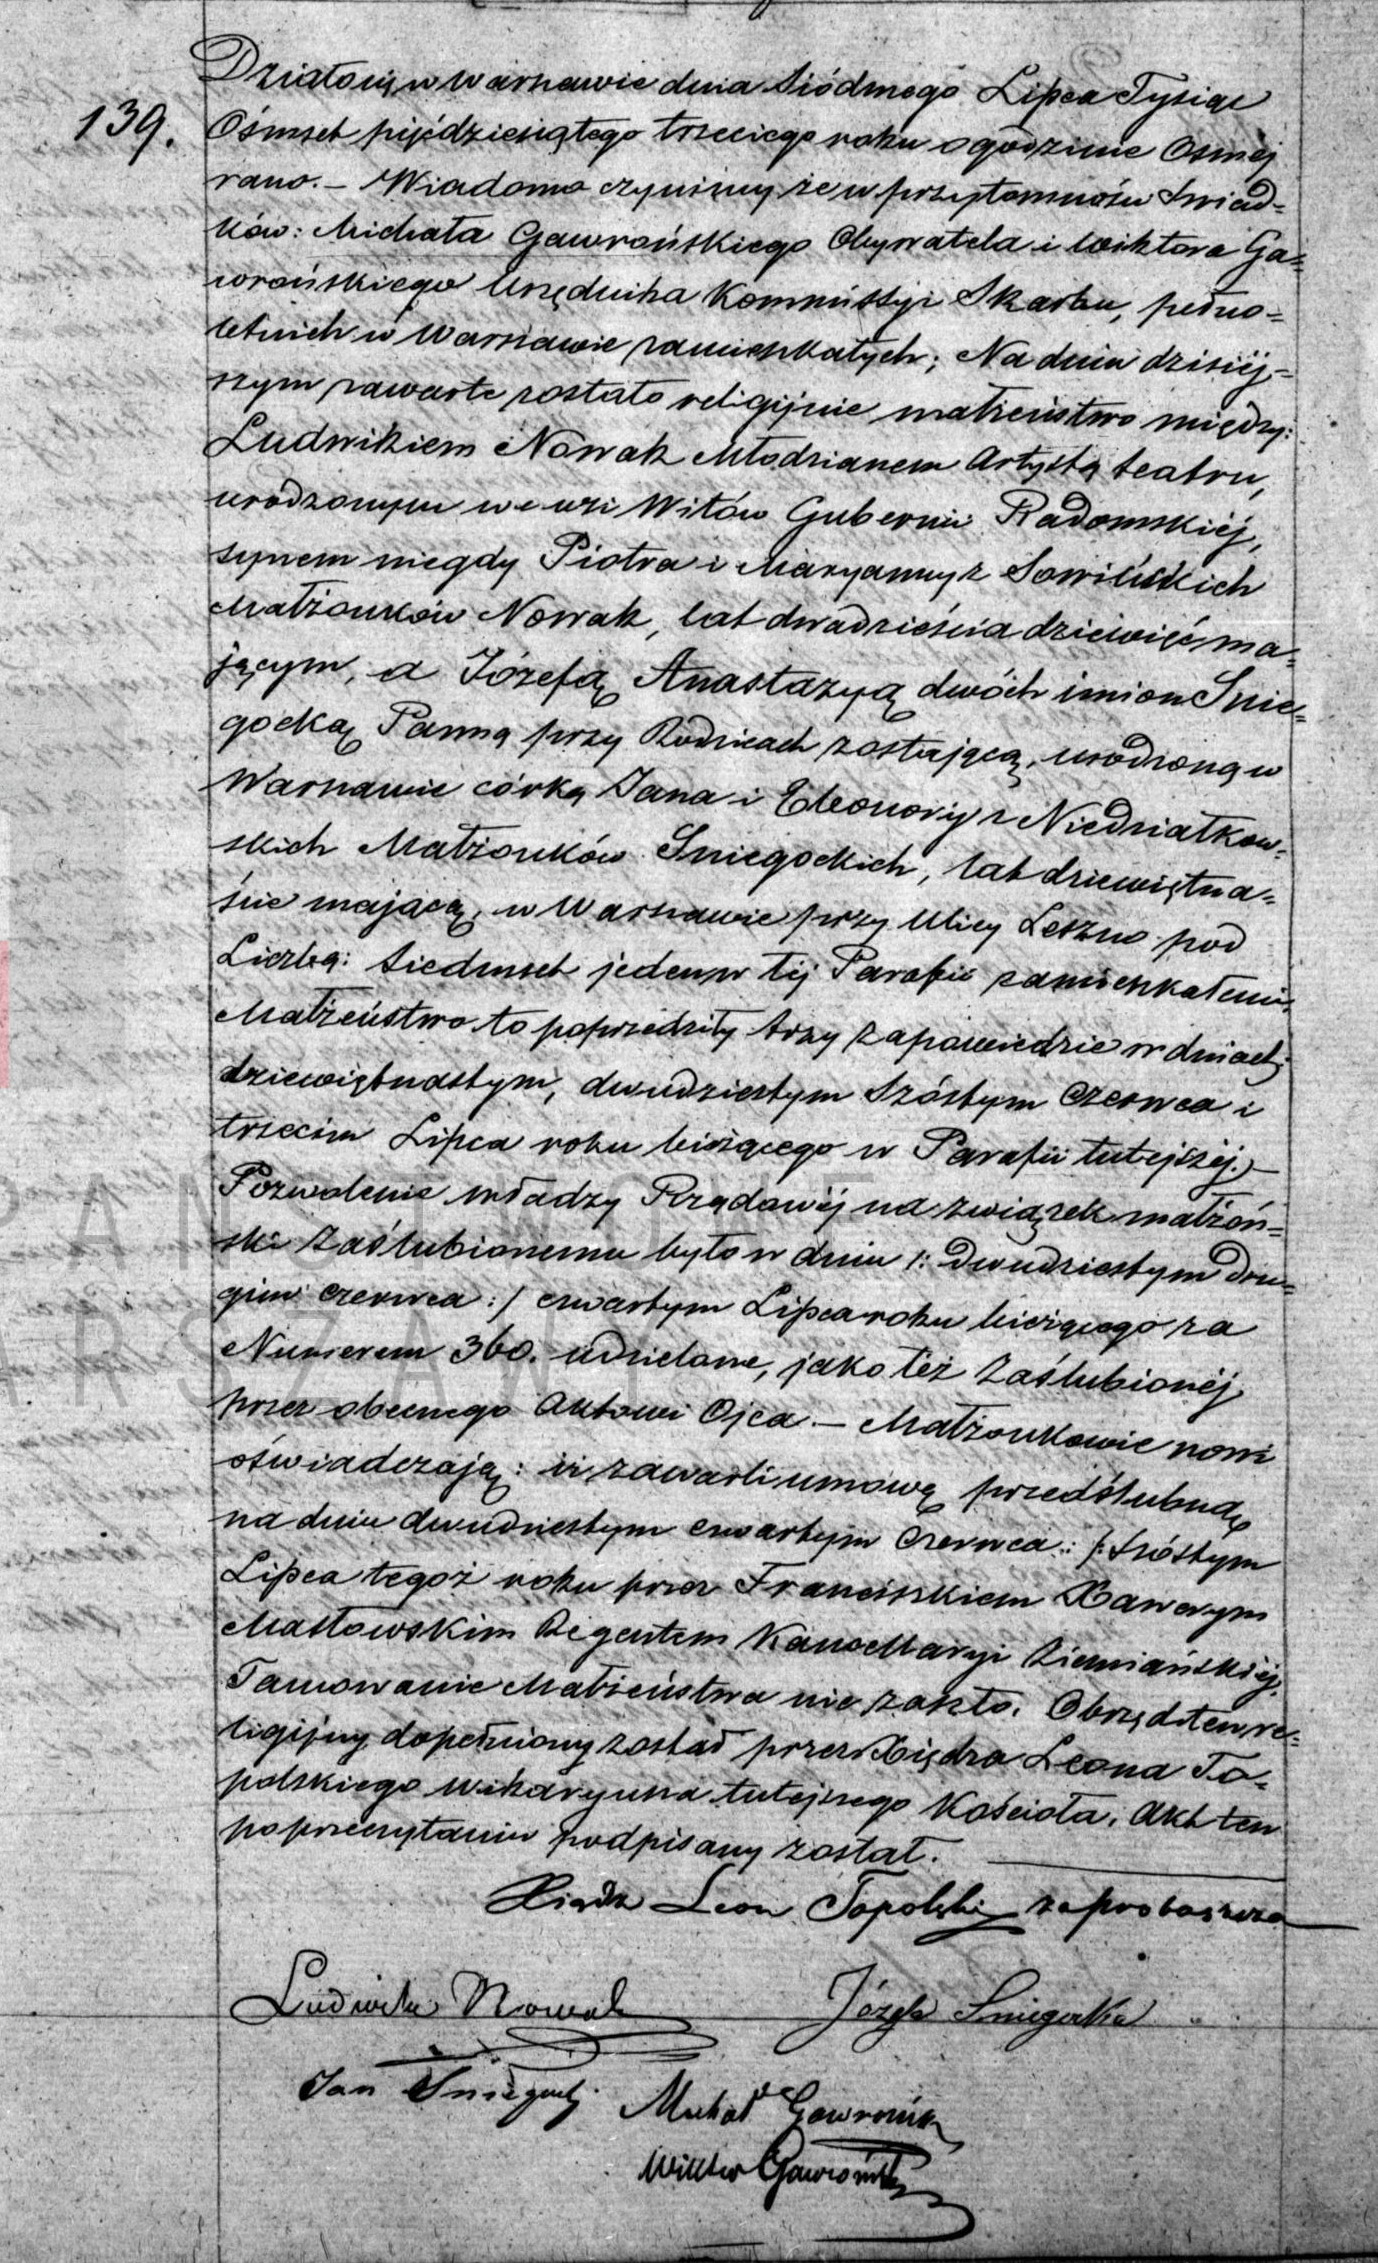 139.
Działo się w Warszawie dnia Siódmego Lipca Tysiąc
Ośmset pięćdziesiątego trzeciego roku o godzinie Osmej
rano. – Wiadomo czynimy że w przytomności Swiad=
ków: Michała Gawrońskiego Obywatela i Wiktora Ga=
wrońskiego Urzędnika Kommissyi Skarbu, pełno=
letnich w Warszawie zamieszkałych; Na dniu dzisiéj=
szym zawarte zostało religijnie małżeństwo między:
Ludwikiem Nowak Młodzianem Artystą teatru,
urodzonym we wsi Witów Gubernii Radomskiéj,
synem niegdy Piotra i Maryanny z
Małżonków Nowak, lat dwadzieścia dziewięć ma=
jącym, a Józefą Anastazyą dwóch imion Snie=
gocką Panną przy Rodzicach zostającą, urodzoną w
Warszawie córką Jana i Eleonory z Niedziałkow=
skich Małżonków Sniegockich, lat dziewiętna=
ście mającą, w Warszawie przy Ulicy Leszno pod
Liczbą: Siedmset jeden w téj Parafii zamieszkałemi,
Małżeństwo to poprzedziły trzy zapowiedzie w dniach:
dziewiętnastym, dwudziestym Szóstym Czerwca i
trzecim Lipca roku bieżącego w Parafii tutejszéj. –
Pozwolenie władzy Rządowéj na związek małżoń=
ski Zaślubionemu było w dniu /: dwudziestym dru=
gim czerwca :/ czwartym Lipca roku bieżącego za
Numerem 360. udzielone, jako też Zaślubionéj
przez obecnego Aktowi Ojca. – Małżonkowie nowi
oświadczają: iż zawarli umowę przedślubną
na dniu dwudziestym czwartym Czerwca :/: Szóstym
Lipca tegoż roku przez Franciszkiem Xawerym
Masłowskim Regentem Kancellaryi Ziemiańskiéj.
Tamowanie Małżeństwa nie zaszło. Obrzęd ten re=
ligijny dopełniony został przez Xiędza Leona To=
polskiego Wikaryusza tutejszego Kościoła. Akt ten
po przeczytaniu podpisany został.
Xiądz Leon Topolski za proboszcza
Ludwik Nowak Józefa Sniegocka
Jan Sniegocki Michał Gawroński
Wiktor Gawroński
PAŃSTWOWE
WARSZAWY